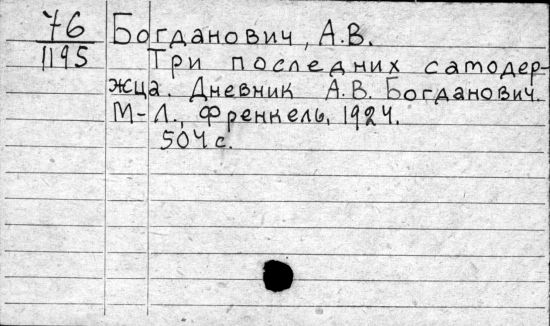 76 Богданович, А.В.
1195 Три последних самодер-
жца. Дневник А.В. Богданович.
М-Л., Френкель, 1924.
504 с.